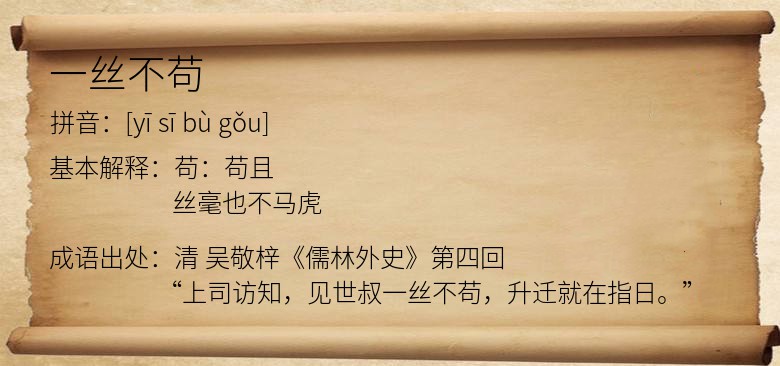 一丝不苟
拼音：[yī sī bù gǒu]
基本解释：苟：苟且
丝毫也不马虎
成语出处：清 吴敬梓《儒林外史》第四回
“上司访知，见世叔一丝不苟，升迁就在指日。”